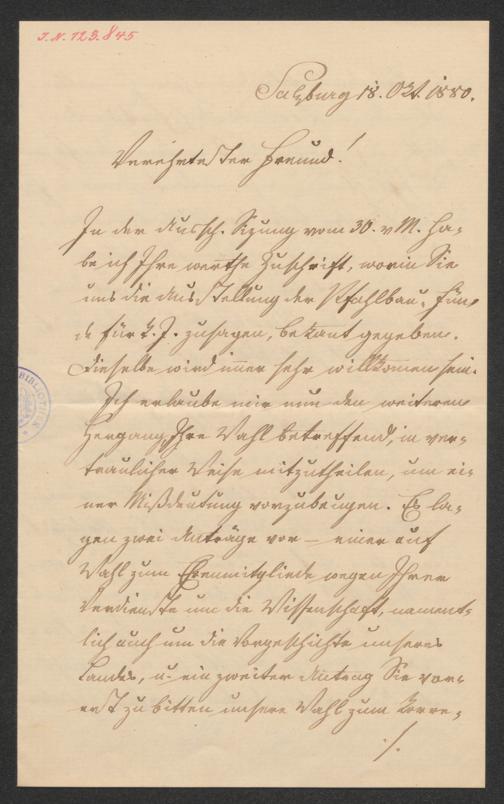 J.N. 123.845
Salzburg 18. Okt. 1880.
Verehrtester Freund!
In der Aussch. Sizung vom 30. v M. ha-
be ich Ihre werthe Zuschrift, worin Sie
uns die Ausstellung der Pfahlbau-Fun-
de für k. J. zusagen, bekant gegeben.
Dieselbe wird immer sehr willkomen sein.
Ich erlaube mir nun den weiteren
Hergang, Ihre Wahl betreffend, in ver-
traulicher Weise mitzutheilen, um ei-
ner Mißdeutung vorzubeugen. Es la-
gen zwei Anträge vor – einer auf
Wahl zum Ehrenmitgliede wegen Ihrer
Verdienste um die Wissenschaft, nament-
lich auch um die Vorgeschichte unseres
Landes, u. ein zweiter Antrag Sie vor-
erst zu bitten unsere Wahl zum Korre-
./.
BIBLIOTHEK